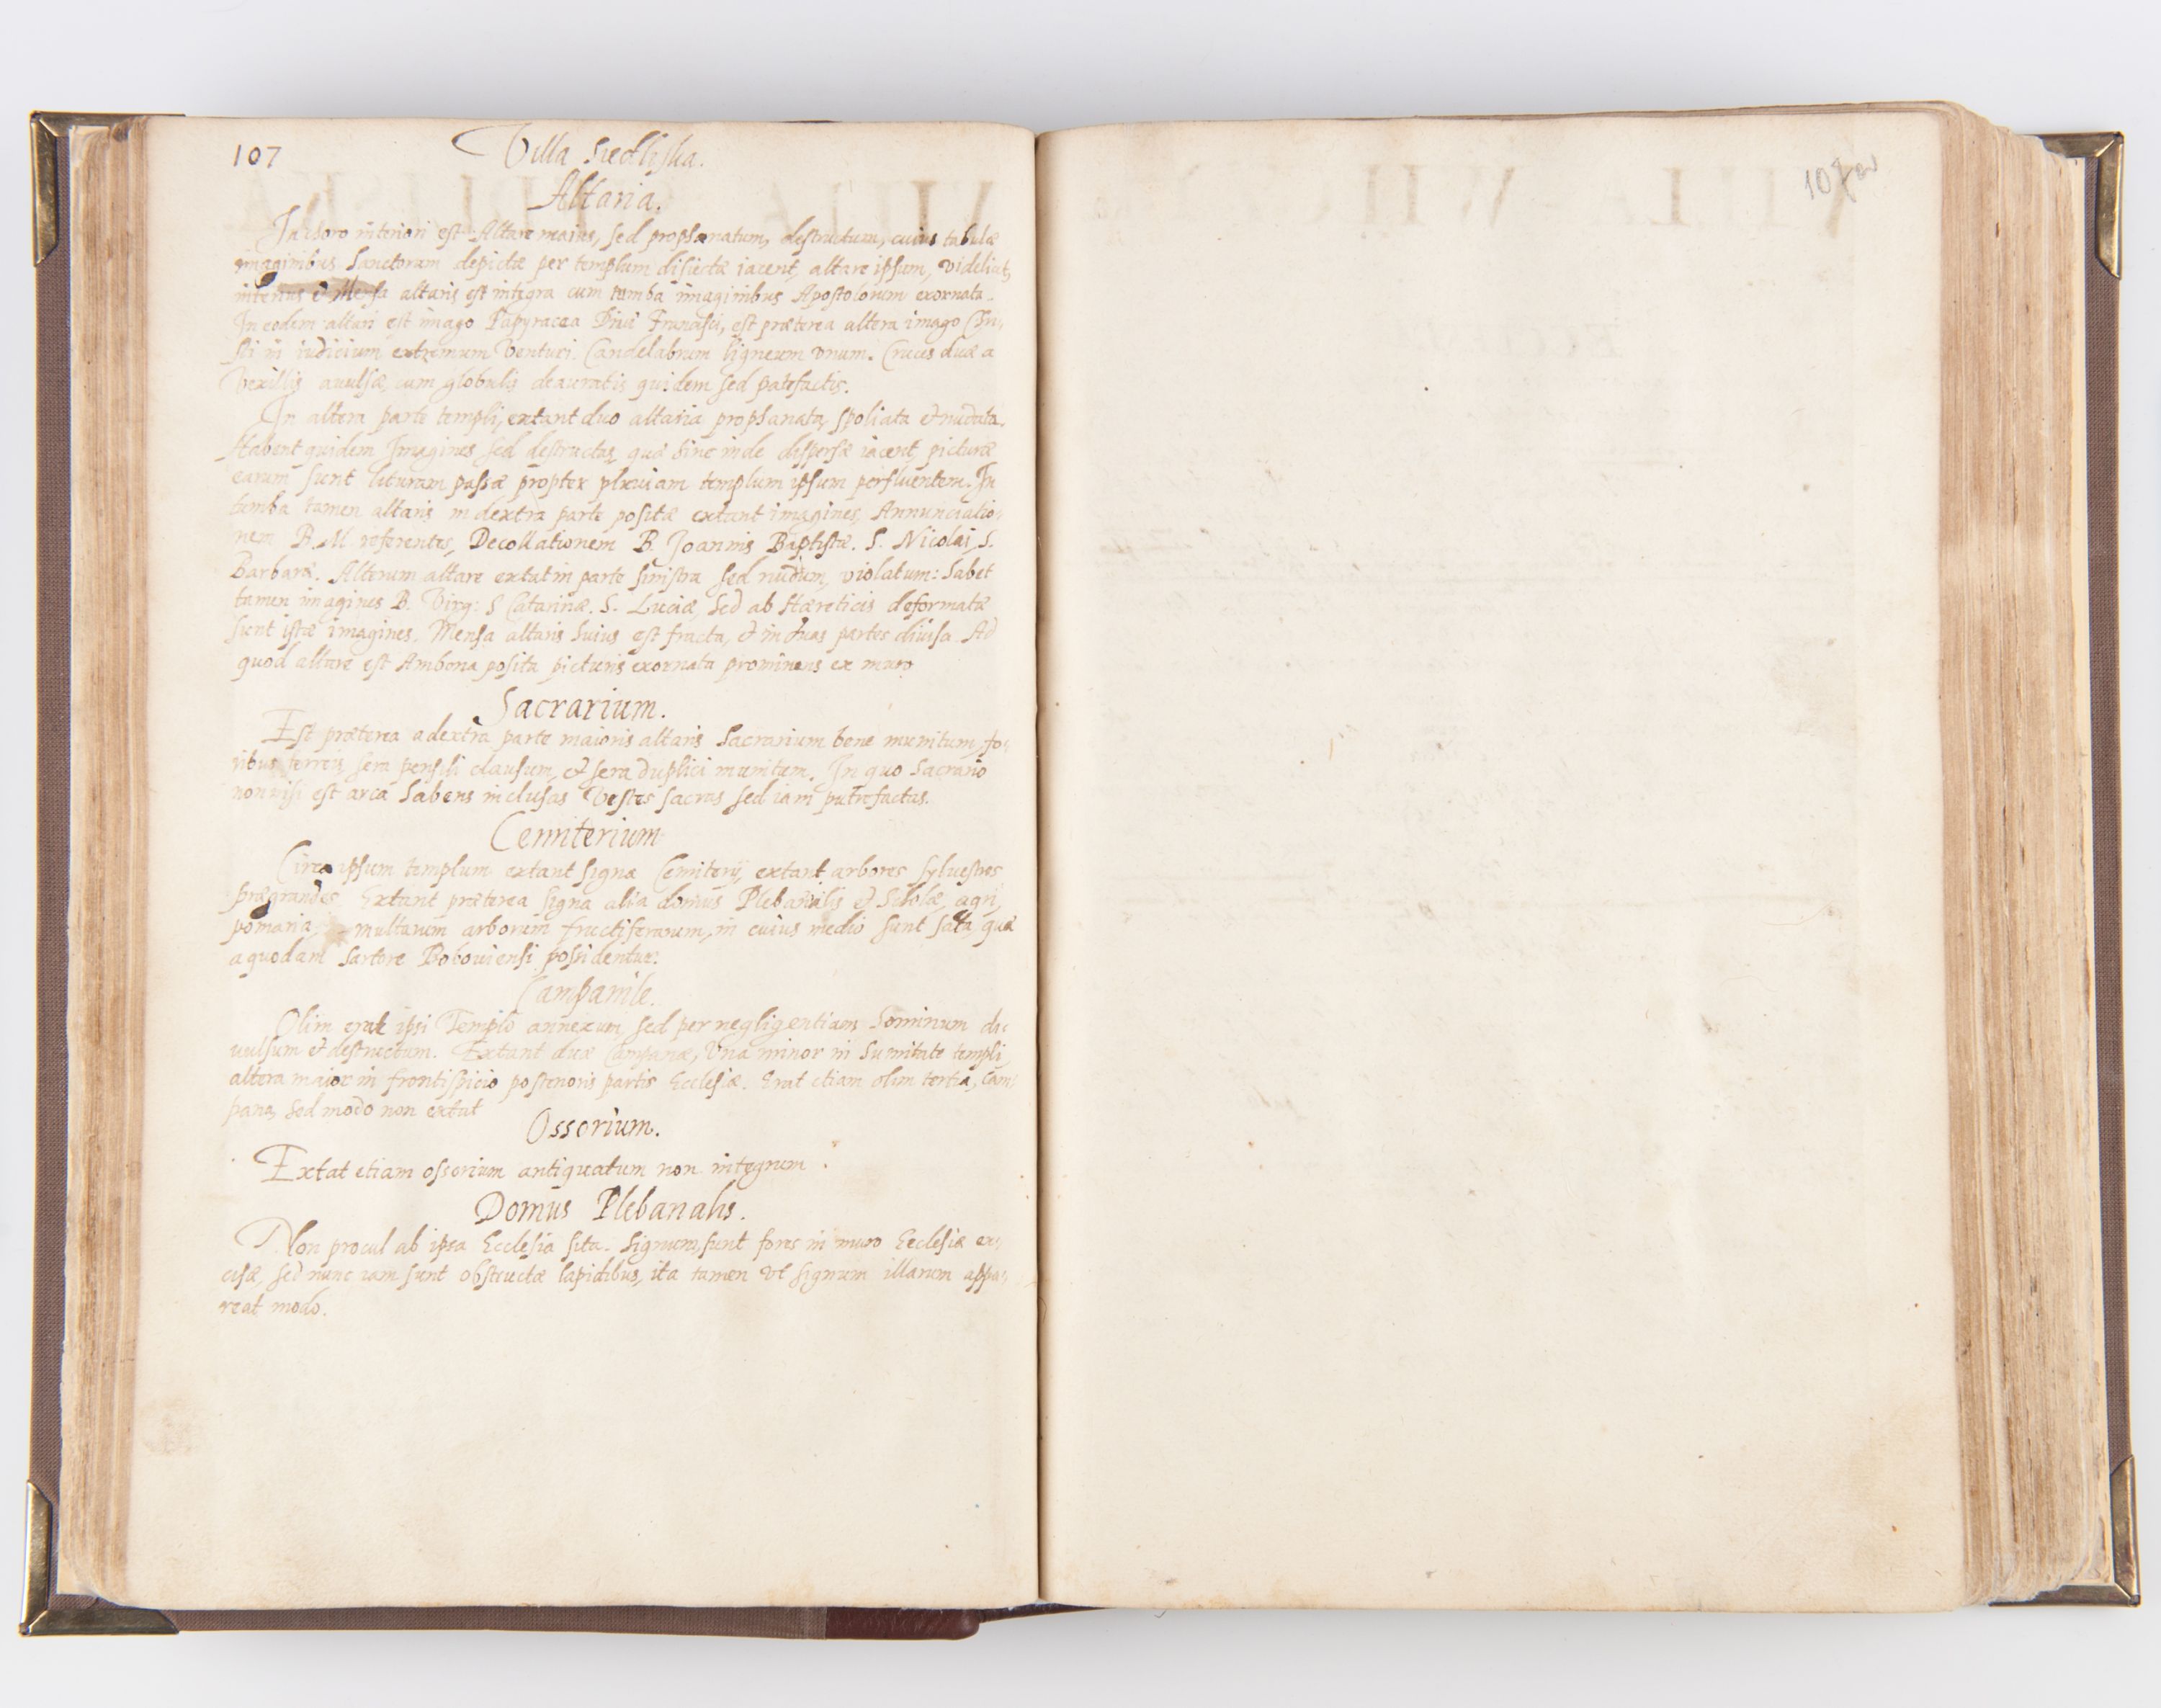 107
Villa Siedliska.
Altaria.
In choro interiori est Altare maius, sed prophanatum, destructum, cuius tabulæ
imaginibus Sanctorum depictæ per templum disiectæ iacent, altare ipsum, videlicet,
interius & Mensa altaris est integra cum tumba imaginibus Apostolorum exornata.
In eodem altari est imago Papyracea Divi Francisci, est præterea altera imago Chri,
sti in iudicium extremum Venturi. Candelabrum ligneum vnum. Cruces duæ a
Vexillis auulsæ, cum globulis deauratis quidem sed patefactis.
In altera parte templi, extant duo altaria prophanata, spoliata & nudata.
Habent quidem Imagines sed destructas, quæ hinc inde dispersæ iacent, picturæ
earum sunt lituram passæ propter pluuiam templum ipsum perfluentem. In
tumba tamen altaris in dextra parte positæ extant imagines, Annunciatio,
nem B. M. referentes, Decollationem B. Joannis Baptistæ. S. Nicolai, S.
Barbaræ. Alterum altare extat in parte sinistra sed nudum, violatum: habet
tamen imagines B. Virg: S Catarinæ. S. Luciæ, sed ab Hæreticis deformatæ
sunt istæ imagines. Mensa altaris huius est fracta, & in duas partes diuisa. Ad
quod altare est Ambona posita picturis exornata prominens ex muro.
Sacrarium.
Est præterea a dextra parte maioris altaris Sacrarium bene munitum, fo,
ribus ferreis, sera pensili clausum, & sera duplici munitum. In quo Sacrario
non nisi est arca habens inclusas Vestes sacras sed iam putrefactas.
Cemiterium
Circa ipsum templum extant signa Cemiterij, extant arbores syluestres
prægrandes. Extant præterea signa alia domus Plebanalis & Scholæ, agri,
pomaria, multarum arborum fructiferarum, in cuius medio sunt sata, quæ
a quodam Sartore Boboviensi possidentur.
Campanile.
Olim erat ipsi Templo annexum, sed per negligentiam hominum di,
uulsum & destructum. Extant duæ Campanæ, Vna minor in Sumitate templi,
altera maior in frontispicio posterioris partis Ecclesiæ. Erat etiam olim tertia, Cam,
pana, sed modo non extat
Ossorium.
Extat etiam ossorium antiquatum non integrum.
Domus Plebanalis.
Non procul ab ipsa Ecclesia sita. Signum, sunt fores in muro Ecclesiæ ex,
cisæ, sed nunc iam sunt obstructæ lapidibus, ita tamen vt signum illarum appa,
reat modo.